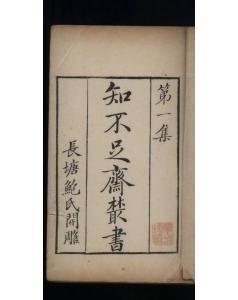 第一集
知不足齋叢書
長塘鮑氏開雕